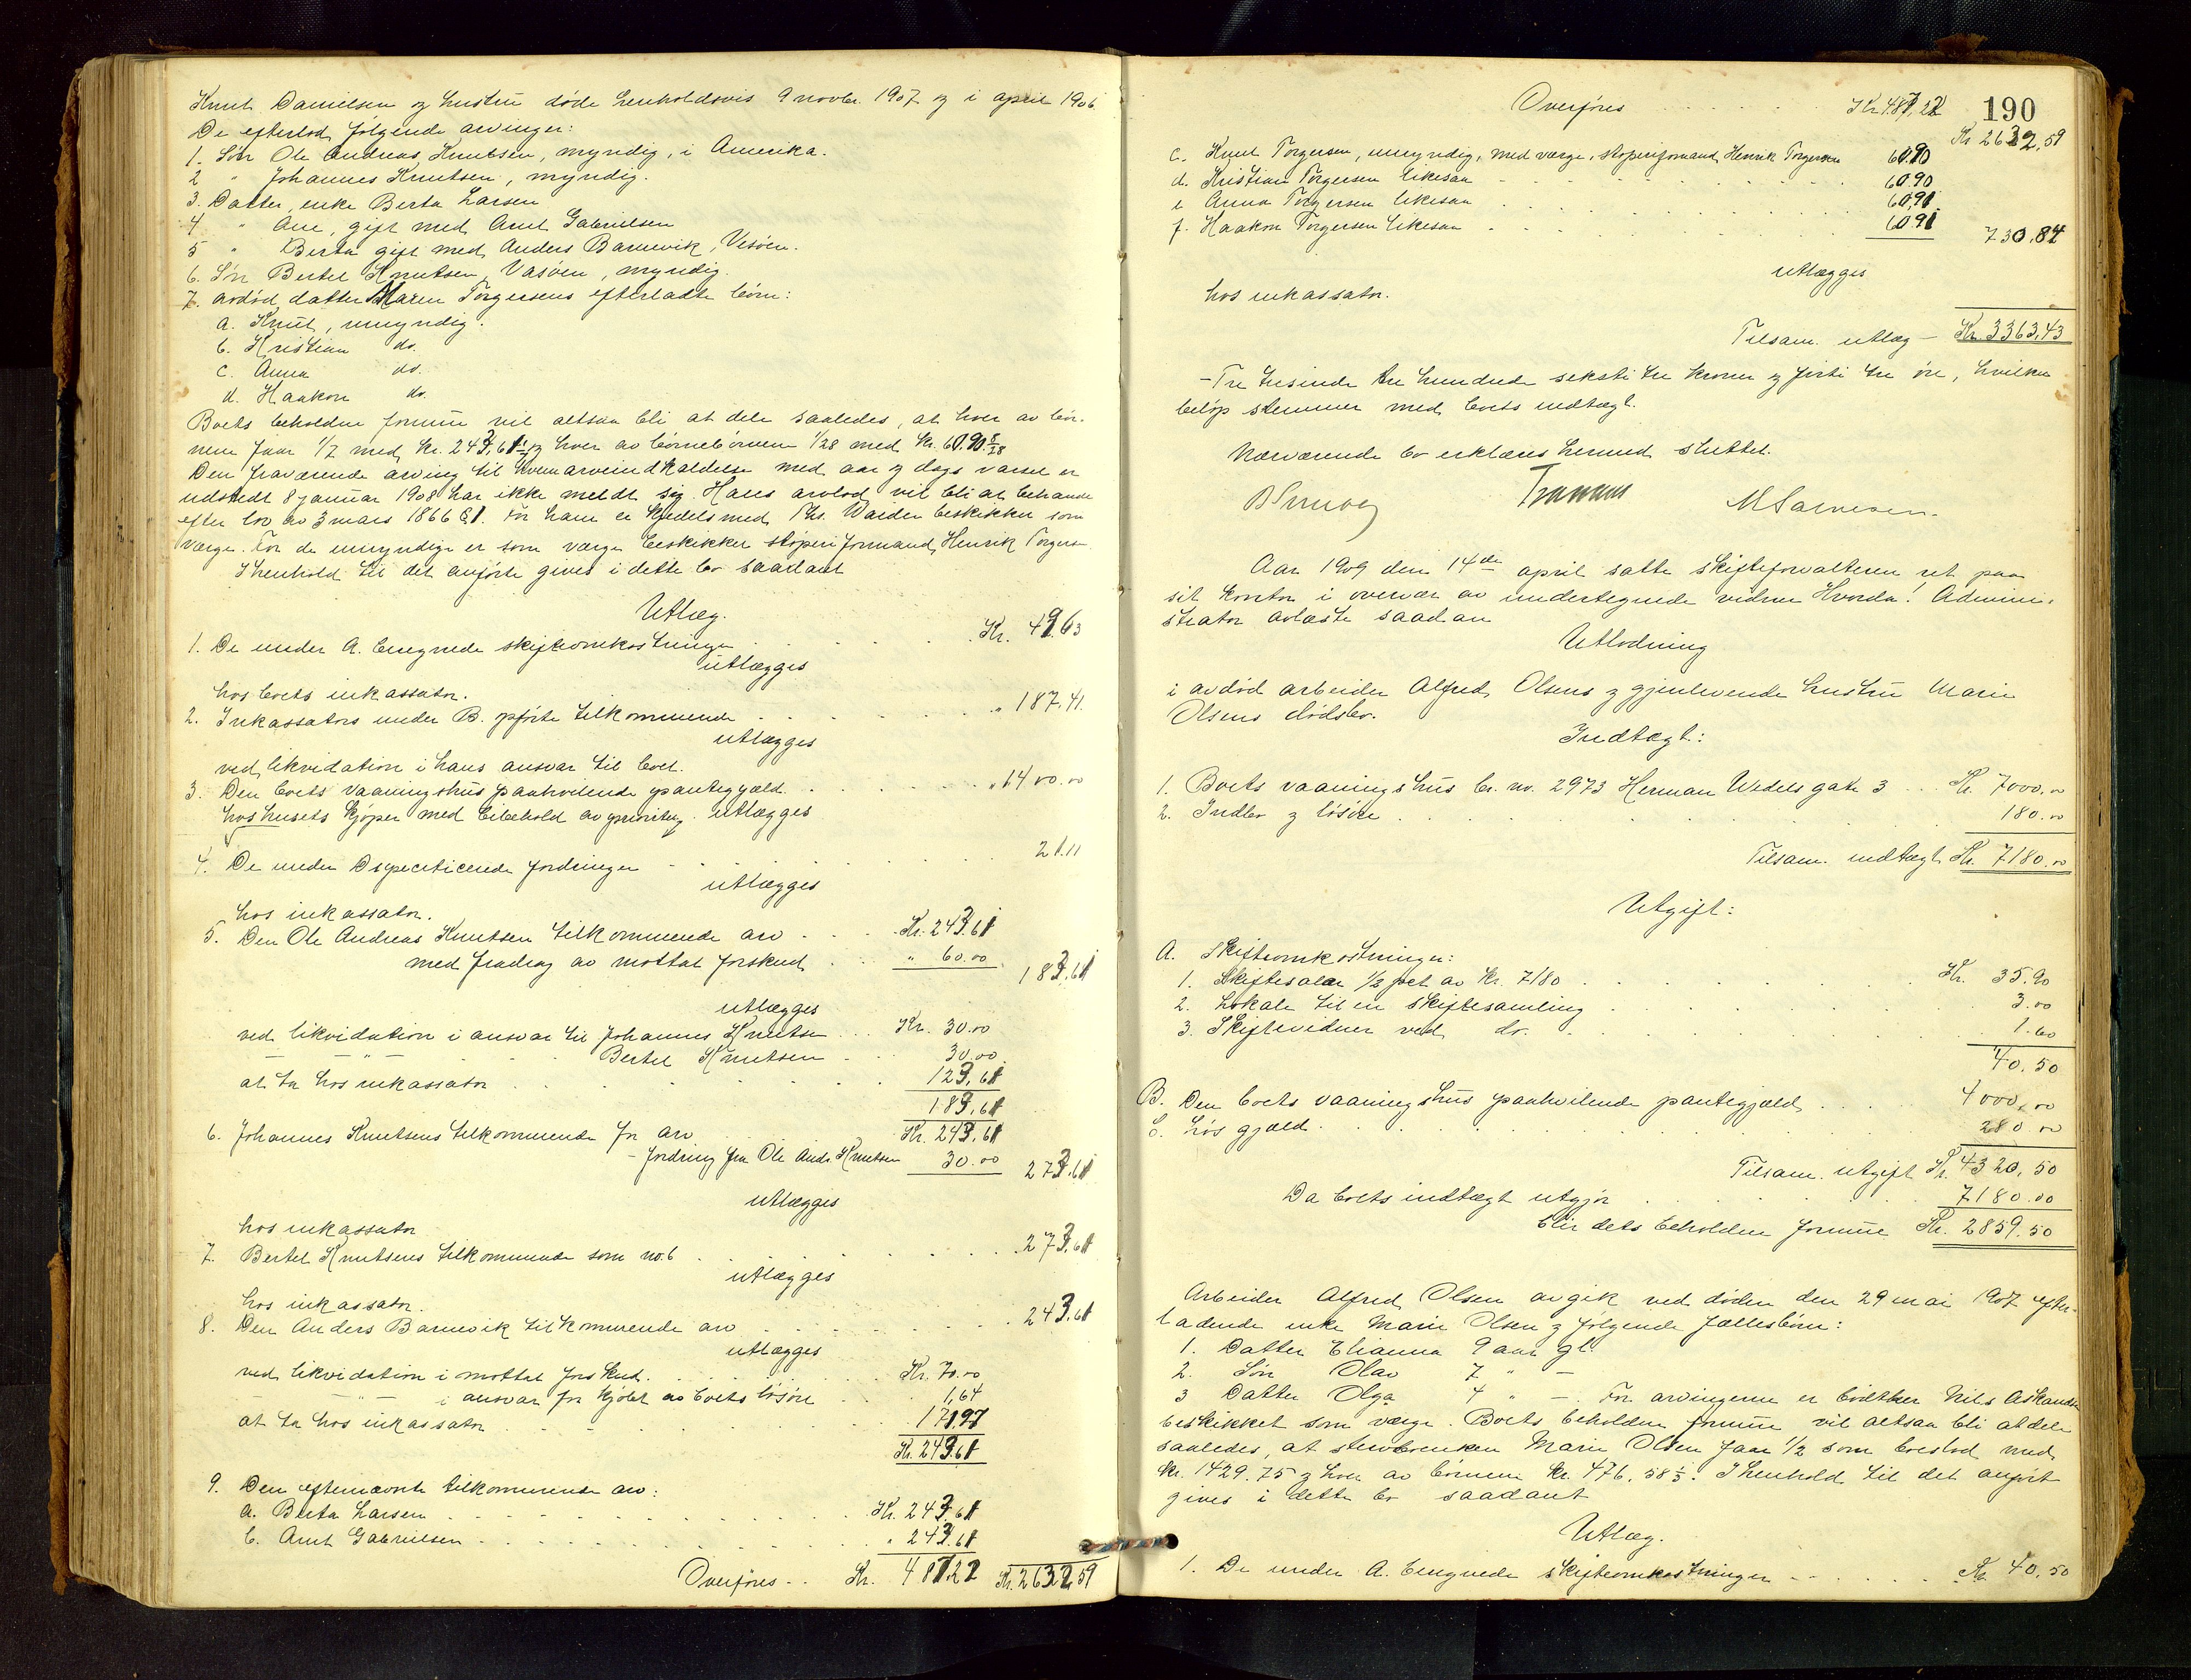 Knut Danielsen og hustru døde henholdsvis 9 novbr. 1907 og i april 1906.
De efterlod følgende arvinger:
1. Søn Ole Andreas Knutsen, myndig, i Amerika.
2 " Johannes Knutsen, myndig.
3. Datter, enke Berta Larsen
4 " Ane, gift med Arnt Gabrielsen
5 " Berta gift med Anders Barnevik, Vesøen.
6. Søn Bertel Knutsen, Vasøen, myndig.
7. avdød datter Maren Torgersens efterladte børn:
a. Knut, umyndig.
b. Kristian do.
c. Anna do.
d. Haakon do.
Boets beholdne formue vil altsaa bli at dele saaledes, at hver av bør-
nene faar 1/7 med kr. 243,61 og hver av børnebørnene 1/28 med kr. 60.90
Den fraværende arving til hvem arveindkaldelse med aar og dags varsel er
udstedt 8 januar 1908 har ikke meldt sig. Hans arvelod vil bli at behandle
efter lov av 3 mars 1866 § 1. For ham er kjedelsmed Ths. Warden beskikket som
værge. For de umyndige er som værge beskikket støperiformand Henrik Torgersen
I henhold til det anførte gives i dette bo saadant
Utlæg.
1. De under A. beregnede skifteomkostninger . . . Kr. 49.63
utlægges
hos boets inkassator.
2. Inkassators under B. opførte tilkommende . . . " 187.41.
utlægges
ved likvidation i hans ansvar til boet.
3. Den boets vaaningshus paahvilende pantegjæld. . . . " 1400.00
hos husets kjøper med bibehold av prioritet utlægges
4. De under D specificerede fordringer . . . 21.11
utlægges
hos inkassator.
5. Den Ole Andreas Knutsen tilkommende arv . . . Kr. 243.61
med fradrag av mottat forskud . . . " 60.00 183.61
utlægges
ved likvidation i ansvar til Johannes Knutsen . . . Kr. 30.00
— " — Bertel Knutsen . . . 30.00
at ta hos inkassator . . . 123,61
183,61
6. Johannes Knutsens tilkommende for arv Kr. 243.61
- fordring fra Ole Andr. Knutsen 30.00 273.61
utlægges
hos inkassator
7. Bertel Knutsens tilkommende som no. 6 . . . 273.61
utlægges
hos inkassator.
8. Den Anders Barnevik tilkommende arv . . . 243.61
utlægges
ved likvidation i mottat forskud. . . . Kr. 70.00
— " — i ansvar for kjøbt av boets løsøre . . . 1,64
at ta hos inkassator . . . 171.97
Kr. 243.61
9. Den efternævnte tilkommende arv:
a. Berta Larsen . . . Kr. 243.61
b. Arnt Gabrielsen . . . " 243.61
Overføres . . Kr. 487.22 Kr. 2632,59
190
Overføres . . . Kr. 487,22 Kr 2632,59
c. Knut Torgersen, umyndig, med værge, støperiformand Henrik Torgersen 60.90
d. Kristian Torgersen likesaa . . . 60.90
e Anna Torgersen likesaa . . . 60,91
f. Haakon Torgersen likesaa . . . 60.91 730,84
utlægges
hos inkassator.
Tilsam. utlæg — Kr. 3363,43
— Tre tusinde tre hundrede seksti tre kroner og førti tre øre, hvilke
beløp stemmer med boets indtægt.
Nærværende bo erklæres hermed sluttet.
M Salvesen.
Aar 1909 den 14de april satte skifteforvalteren ret paa
sit kontor i overvær av undertegnede vidner. Hvorda! Admini-
strator avlæste saadan
Utlodning
i avdød arbeider Alfred Olsens og gjenlevende hustru Marie
Olsens dødsbo.
Indtægt:
1. Boets vaaningshus br. no. 2973 Herman Wedels gate 3 . . Kr. 7000.00
2. Indbo og løsøre . . . 180.00
Tilsam. indtægt Kr. 7180.00
Utgift:
A. Skifteomkostninger:
1. Skiftesalær 1/2 pct av Kr. 7180 . . . Kr. 35.90
2. Lokale til en skiftesamling . . . 3.00
3. Skiftevidner ved do. . . . 1.60
40.50
B. Den boets vaaningshus paahvilende pantegjæld . . . 4000,00
C. Løs gjæld . . . 280.00
Tilsam. utgift Kr. 4320,50
Da boets indtægt utgjør . . . 7180.00
blir dets beholdne formue Kr. 2859.50
Arbeider Alfred Olsen avgik ved døden den 29 mai 1907 efter-
ladende enke Marie Olsen og følgende fællesbørn:
1. Datter Elianna 9 aar gl.
2. Søn Olav 7 " —
3 Datter Olga 4 " — For arvingerne er Nils Askeland
beskikket som værge. Boets beholdne formue vil altsaa bli at dele
saaledes, at stervboenken Marie Olsen faar 1/2 som boeslod med
kr. 1429.75 og hver av børnene kr. 476.58 1/3. I henhold til det anført
gives i dette bo saadant
Utlæg.
1. De under A. beregnede skifteomkostninger . . . Kr. 40.50